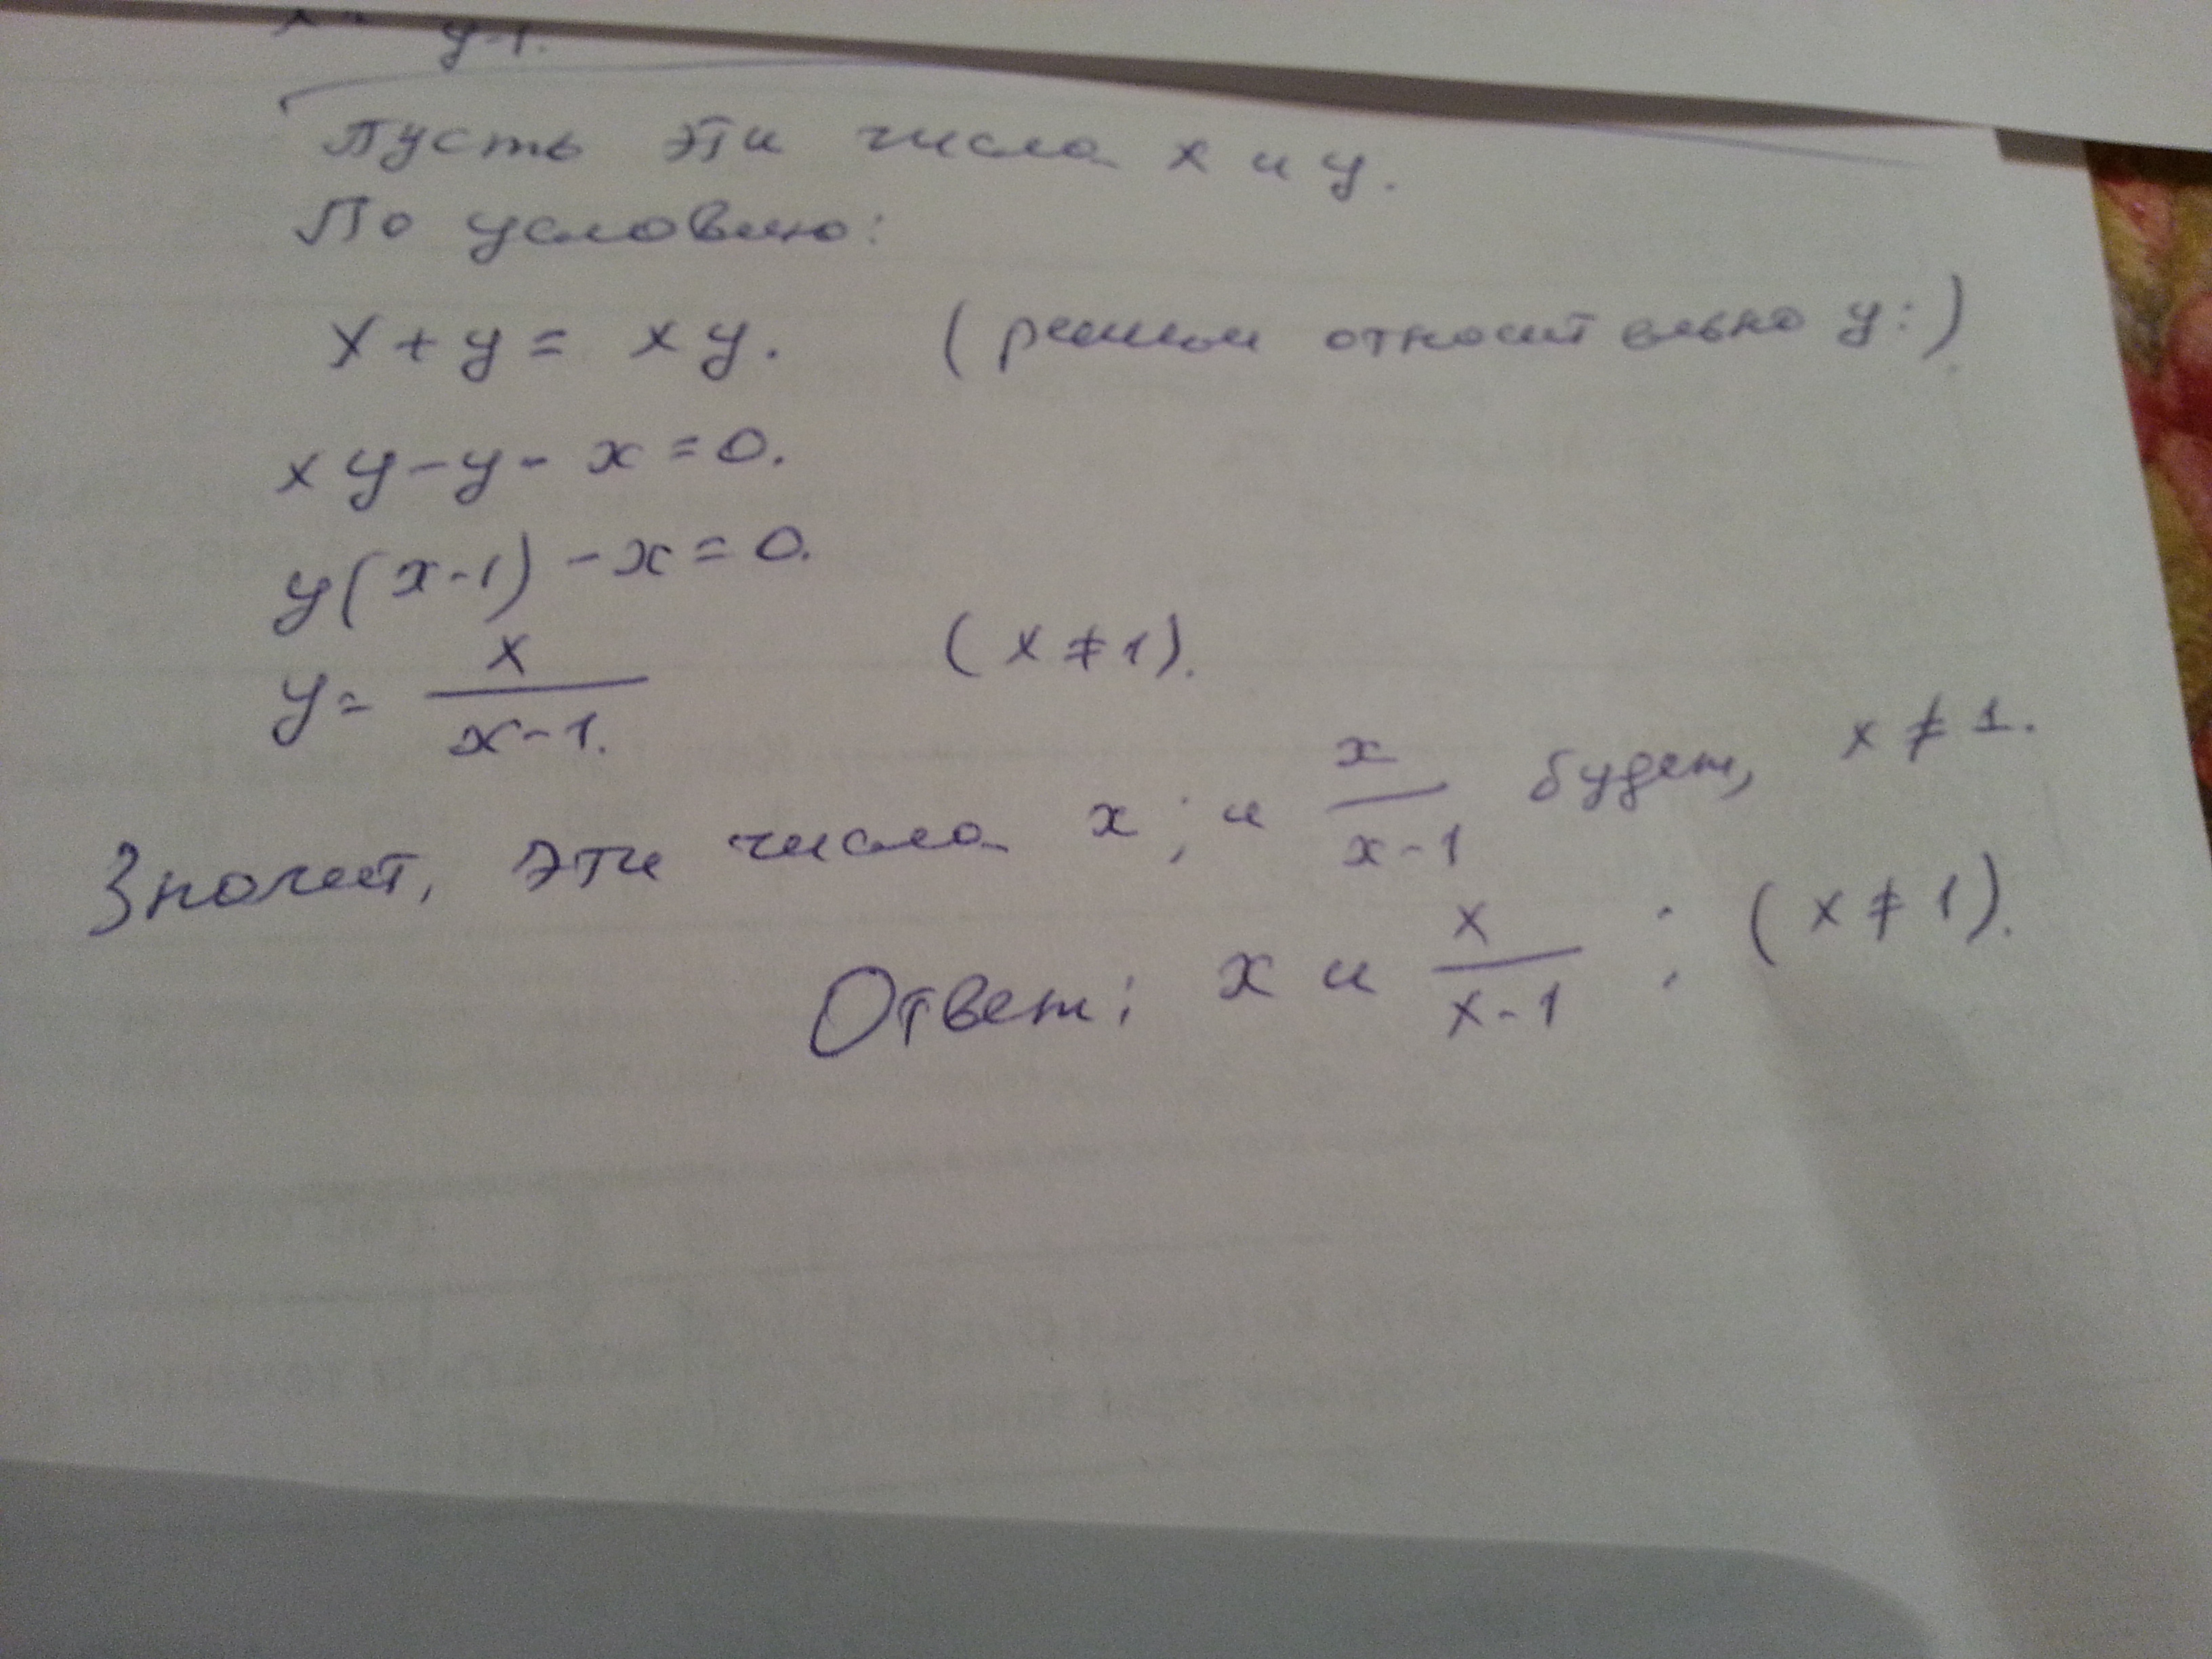 y-1.
Пусть эти числа x и y.
По условию:
x + y = xy. (решим относительно y:)
xy - y - x = 0.
y(x-1) - x = 0.
y = x / x-1. (x ≠ 1).
Значит, эти числа x; и x / x-1 будет, x ≠ 1.
Ответ: x и x / x-1 ; (x ≠ 1).